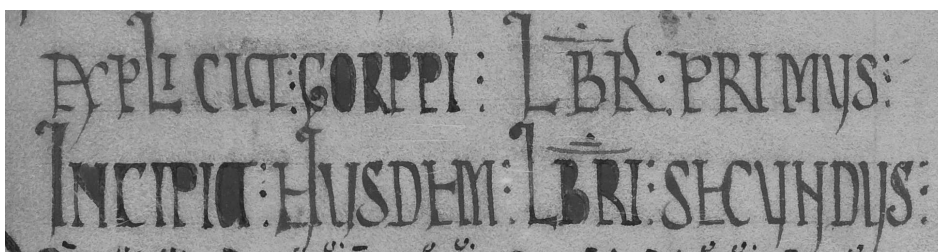 EXPLICIT: GORPPI: LBR: PRIMUS:
INCIPIT: HUSDEM: LBRI: SECUNDUS: